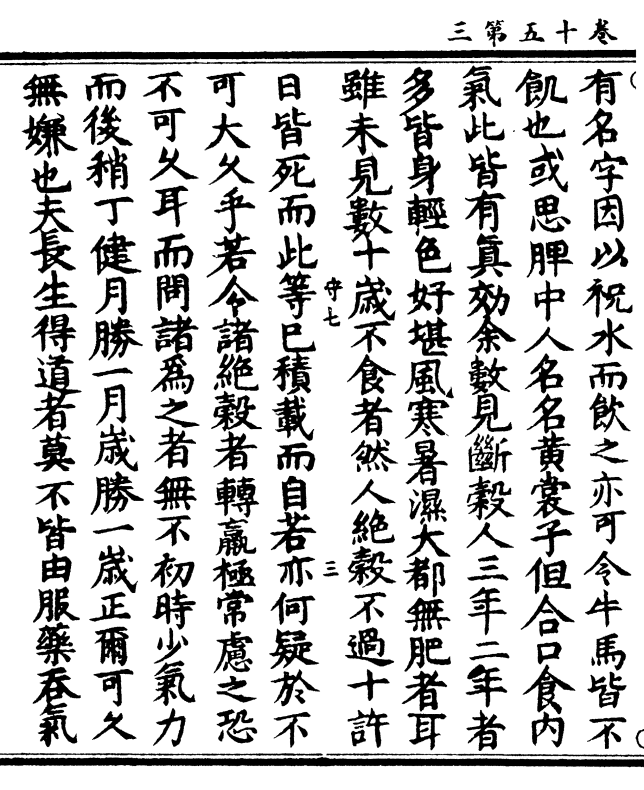 卷十五第三
有名字因以祝水而飲之亦可令牛馬皆不
飢也或思脾中人名名黃裳子但合口食內
氣此皆有真効余數見斷穀人三年二年者
多皆身輕色好堪風寒暑濕大都無肥者耳
雖未見數十歲不食者然人絕穀不過十許
守七
三
日皆死而此等已積載而自若亦何疑於不
可大久乎若令諸絕穀者轉羸極常慮之恐
不可久耳而問諸為之者無不初時少氣力
而後稍丁健月勝一月歲勝一歲正爾可久
無嫌也夫長生得道者莫不皆由服藥吞氣